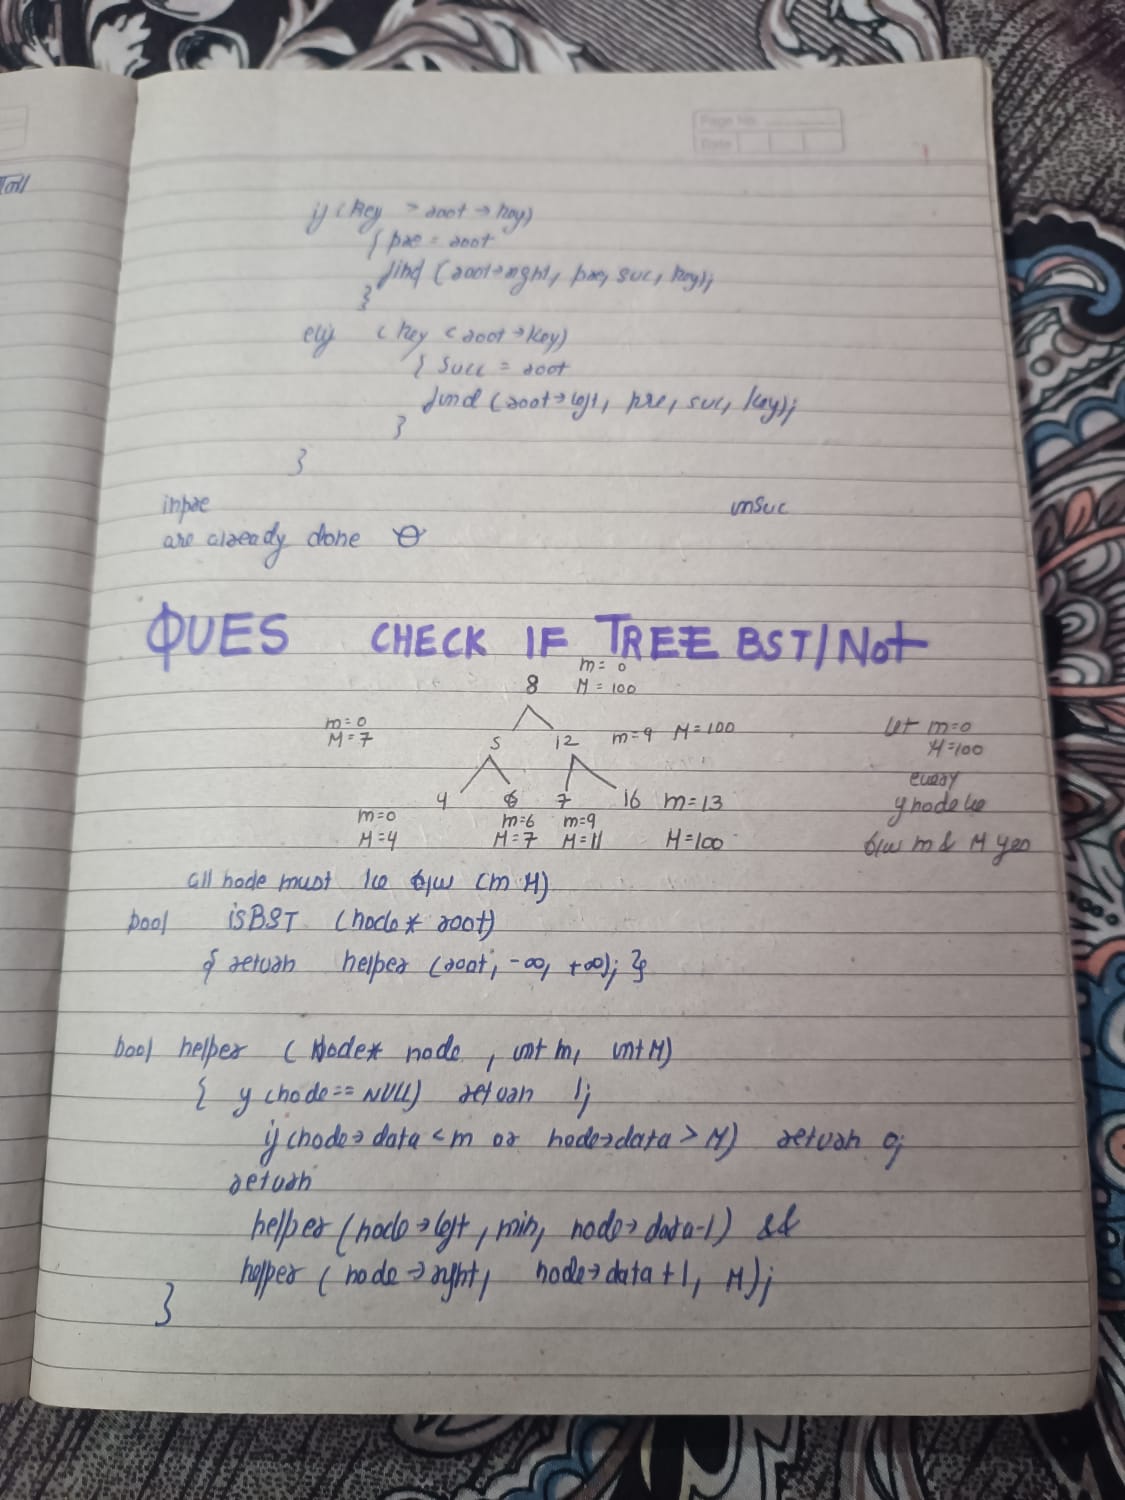 Page No.
Date
if (key > root → key)
{ pre = root
find (root→right, pre, suc, key);
}
elif (key < root → key)
{ succ = root
find (root→left, pre, suc, key);
}
}
inpre insuc
are already done
QUES CHECK IF TREE BST/Not
m = 0
8 M = 100
m=0 m=9 M=100 Let m=0
M=7 5 12 M=100
every
4 6 7 16 m=13 if node lie
m=0 m=6 m=9
M=4 M=7 M=11 M=100 b/w m & M yes
all node must lie b/w (m M)
bool isBST (node* root)
{ return helper (root, -∞, +∞); }
bool helper (Node* node, int m, int M)
{ if (node == NULL) return 1;
if (node→data < m or node→data > M) return 0;
return
helper (node→left, min, node→data-1) &&
helper (node→right, node→data+1, M);
}